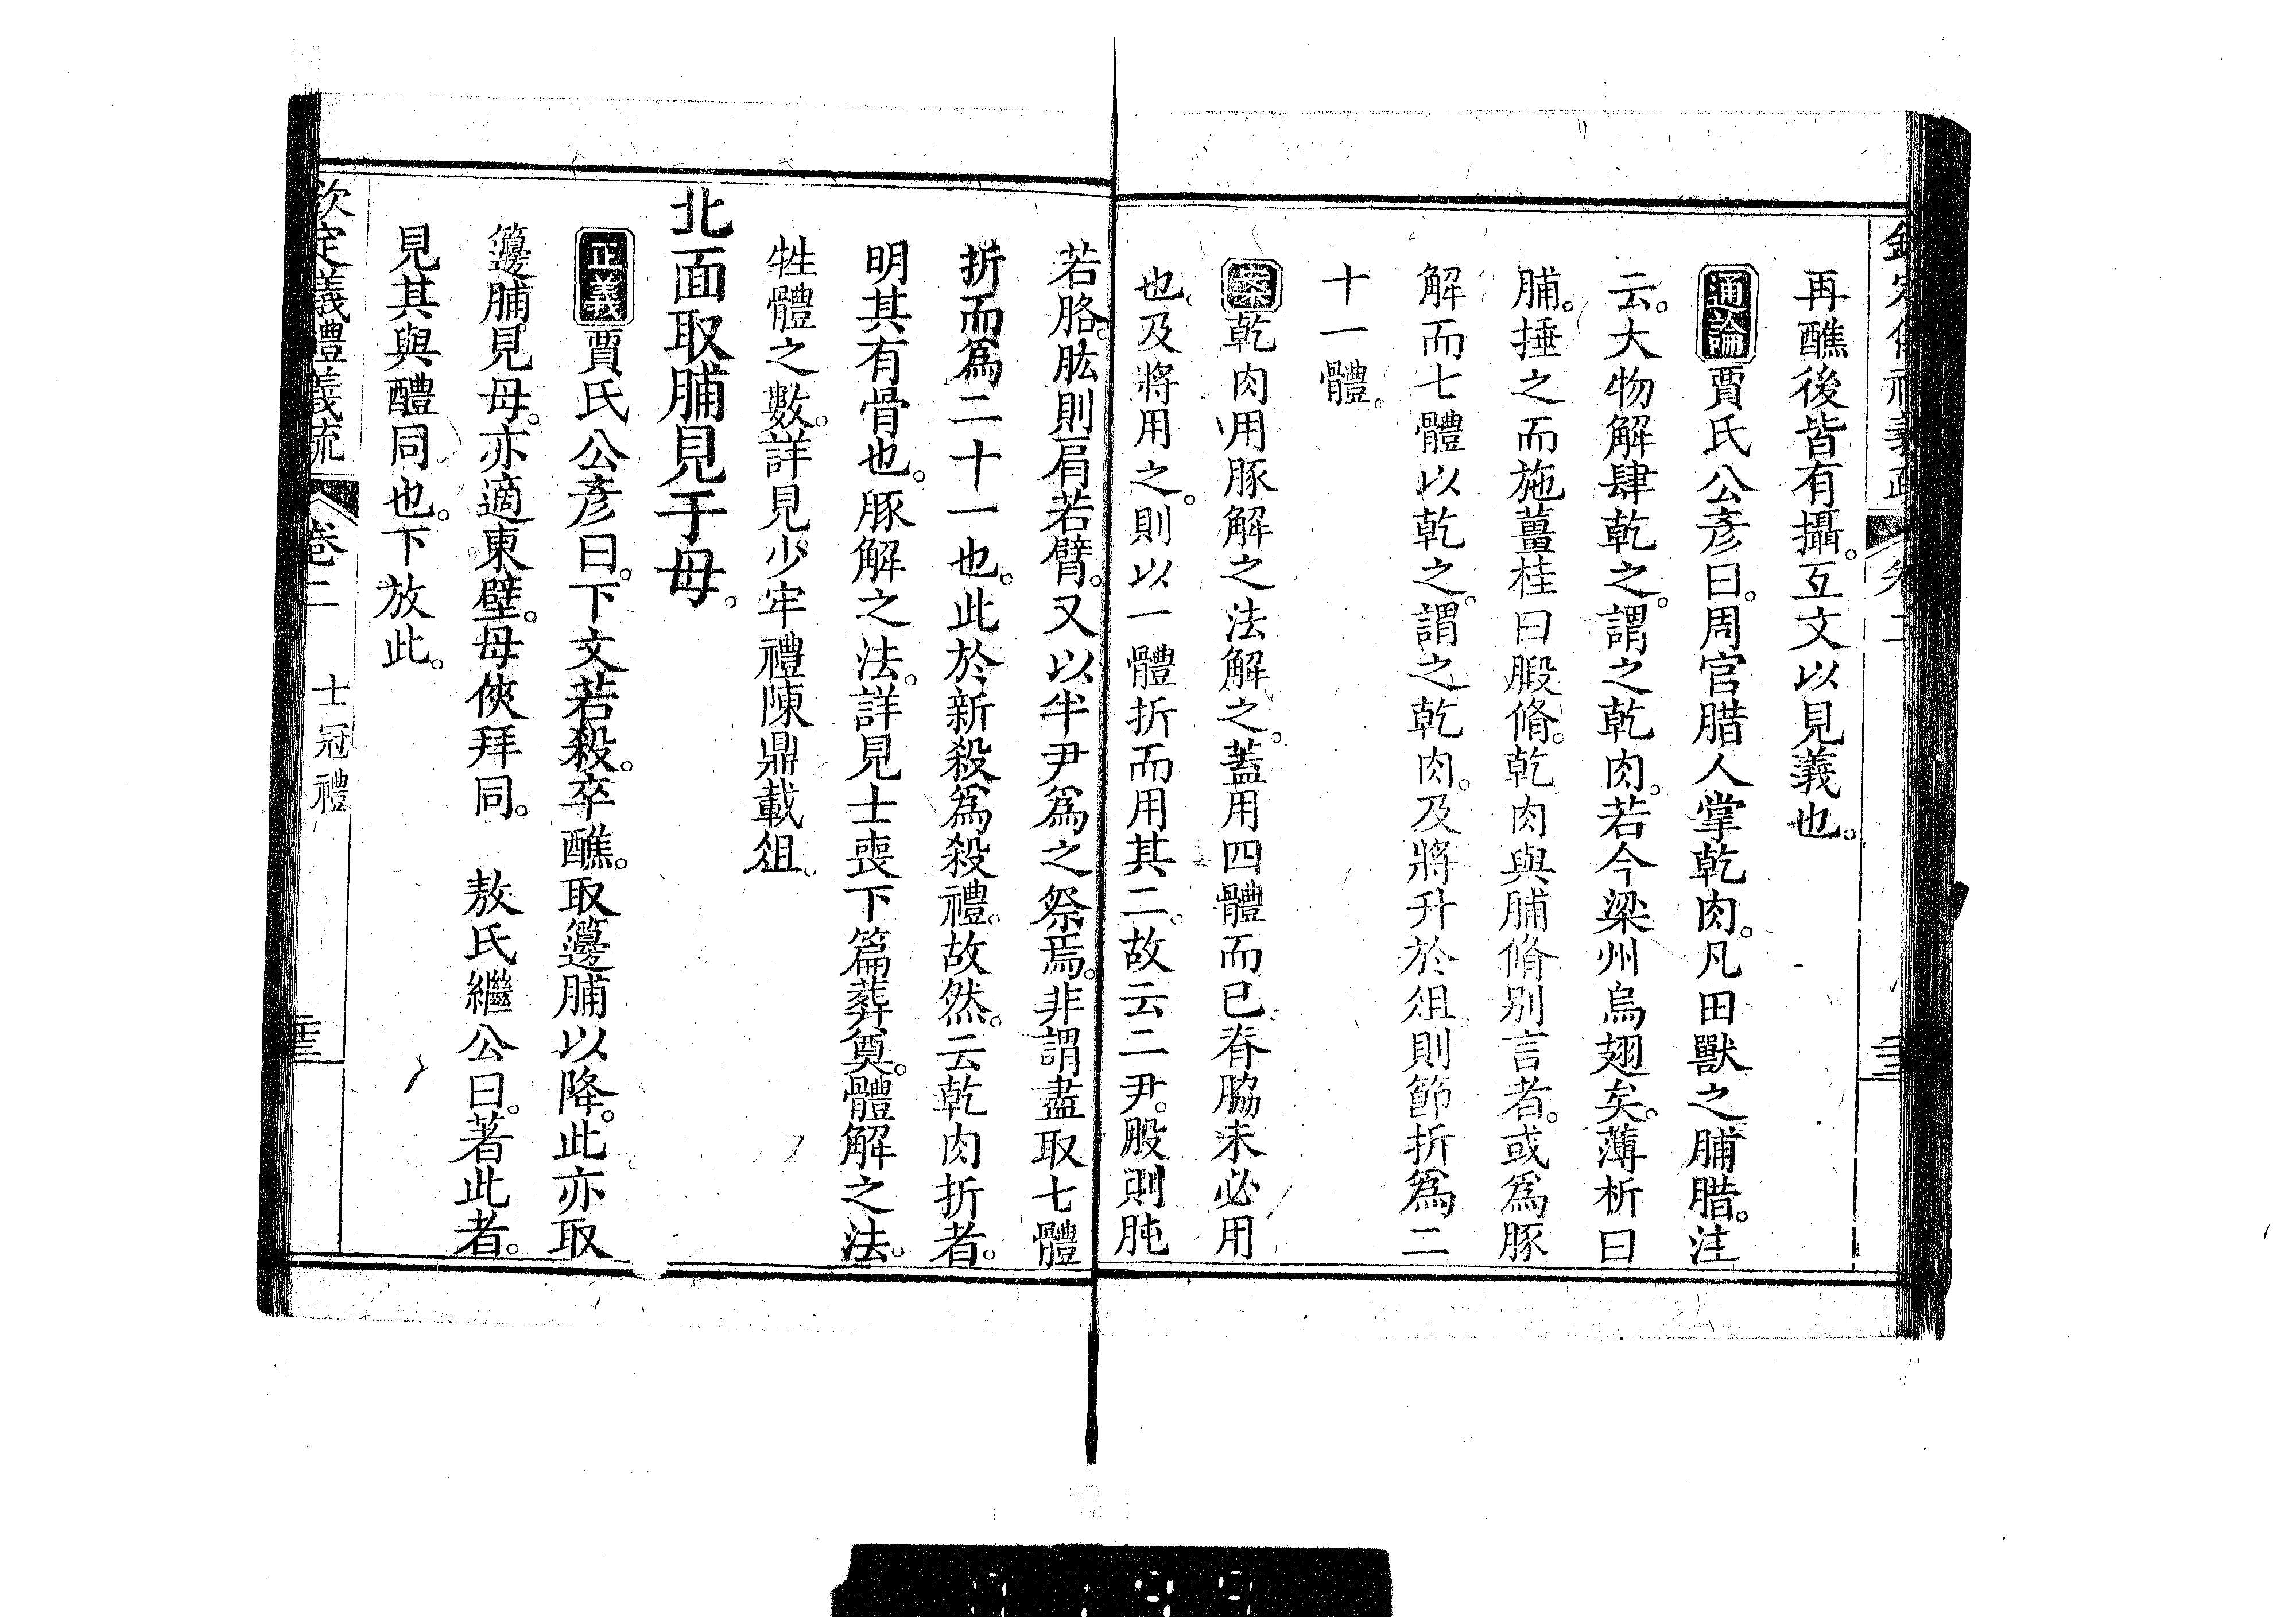 再醮後皆有攝。互文以見義也。
通論賈氏公彥曰。周官腊人掌乾肉。凡田獸之脯腊。注
云。大物解肆乾之。謂之乾肉。若今梁州烏翅矣。薄析曰
脯。捶之而施薑桂曰腶脩。乾肉與脯脩别言者。或爲豚
解而七體以乾之。謂之乾肉。及將升於俎。則節折爲二
十一體。
案乾肉用豚解之法解之。蓋用四體而已。脊脇未必用
也。及將用之。則以一體折而用其二。故云二尹。股則肫
若胳。肱則肩若臂。又以半尹爲之祭焉。非謂盡取七體
折而爲二十一也。此於新殺爲殺禮。故然。云乾肉折者。
明其有骨也。豚解之法。詳見士喪下篇葬奠。體解之法。
牲體之數。詳見少牢禮陳鼎載俎。
北面取脯見于母。
正義賈氏公彥曰。下文若殺。卒醮。取籩脯以降。此亦取
籩脯見母。亦適東壁。母俠拜同。 敖氏繼公曰。著此者。
見其與醴同也。下放此。
欽定義禮義疏 卷二 士冠禮